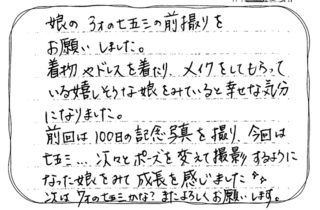 娘の3才の七五三の前撮りを
お願いしました。
着物やドレスを着たり、メイクをしてもらって
いる嬉しそうな娘をみていると幸せな気分
になりました。
前回は100日の記念写真を撮り、今回は
七五三…次々とポーズを変えて撮影するように
なった娘をみて成長を感じました
次は7才の七五三かな?またよろしくお願いします。